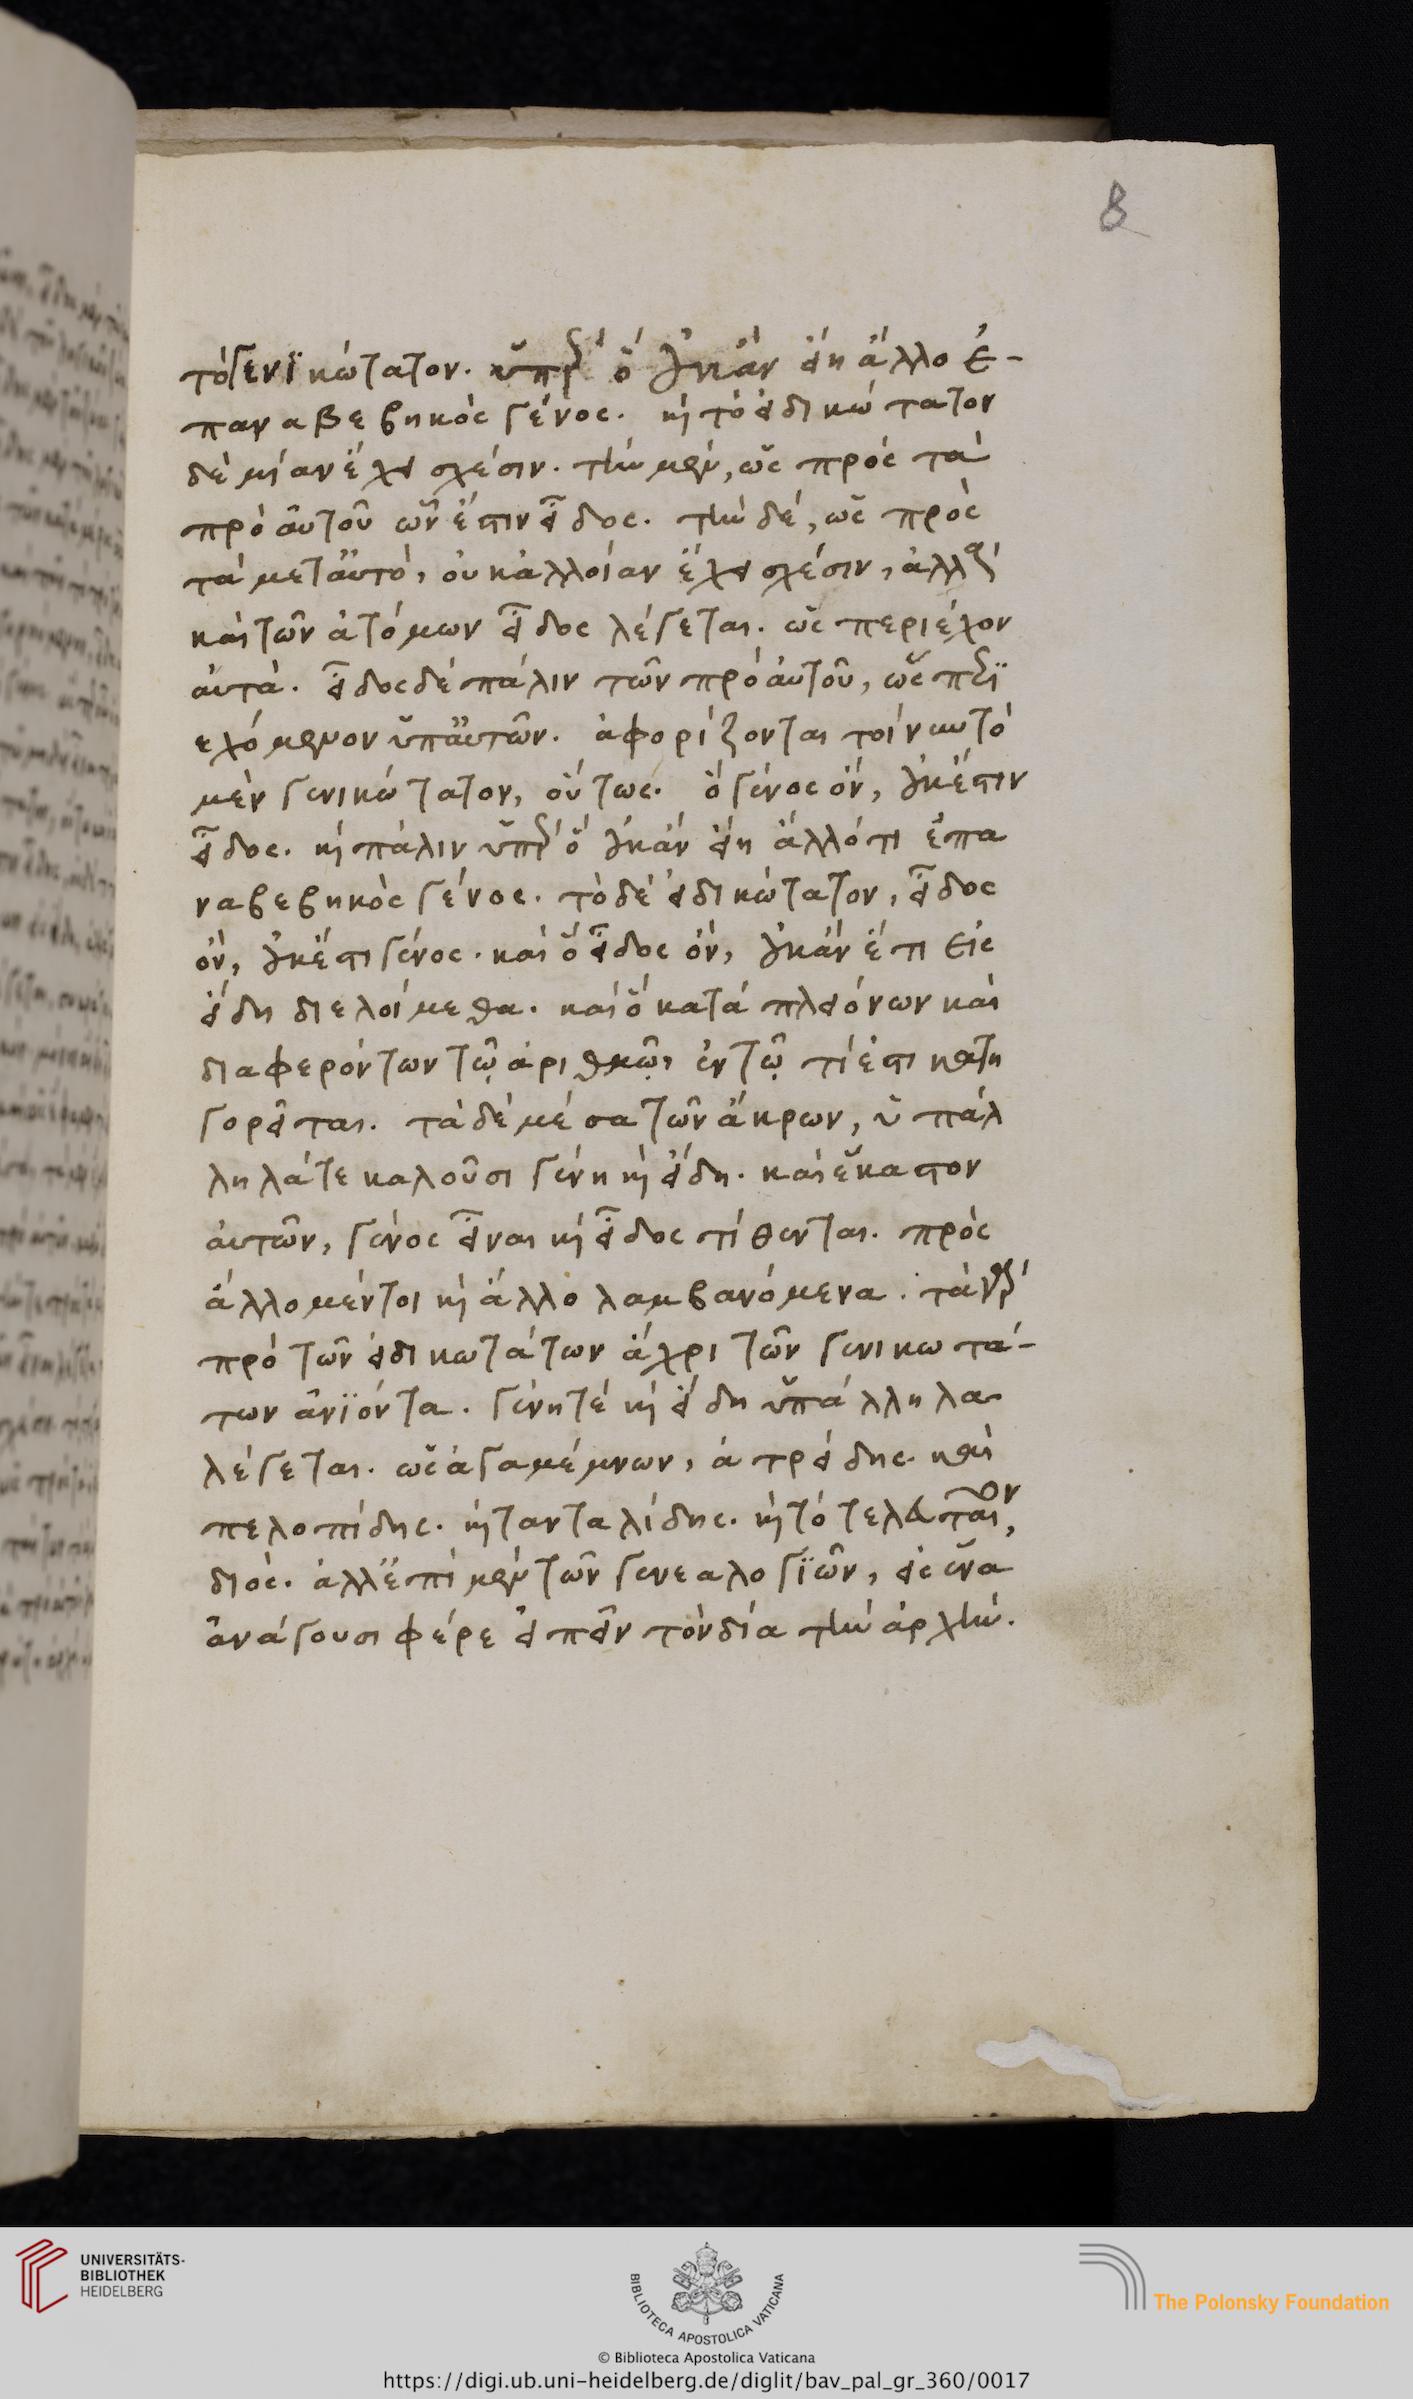 8
τὸ γενϊκώτατον. ὕπὲρ ὃ οὐκ ἂν εἴη ἄλλο ἐ-
παναβεβηκὸς γένος. καὶ τὸ εἰδικώτατον
δὲ μίαν ἔχει σχέσιν. τὴν μὲν, ὡς πρὸς τὰ
πρὸ αὐτοῦ ὧν ἐστιν εἶδος. τὴν δὲ, ὡς πρὸς
τὰ μετ' αὐτό, οὐκ ἀλλοίαν ἔχει σχέσιν, ἀλλὰ
καὶ τῶν ἀτόμων εἶδος λέγεται. ὡς περιέχον
αὐτά. εἶδος δὲ πάλιν τῶν πρὸ αὐτοῦ, ὡς περϊ
εχόμενον ὑπ' αὐτῶν. ἀφορίζονται τοίνυν τὸ
μὲν γενικώτατον, οὕτως. ὃ γένος ὂν, οὐκ ἔστιν
εἶδος. καὶ πάλιν ὑπὲρ ὃ οὐκ ἂν εἴη ἄλλό τι ἐπα
ναβεβηκὸς γένος. τὸ δὲ εἰδικώτατον, εἶδος
ὂν, οὐκ ἔστι γένος. καὶ ὃ εἶδος ὂν, οὐκ ἂν ἔτι εἰς
εἴδη διελοίμεθα. καὶ ὃ κατὰ πλειόνων καὶ
διαφερόντων τῷ ἀριθμῶι ἐν τῷ τί ἐστι κατη
γορεῖται. τὰ δὲ μέσα τῶν ἄκρων, ὑπάλ
ληλά τε καλοῦσι γένη καὶ εἴδη. καὶ ἕκαστον
αὐτῶν, γένος εἶναι καὶ εἶδος τίθενται. πρὸς
ἄλλο μέντοι καὶ ἄλλο λαμβανόμενα. τὰ γὰρ
πρὸ τῶν εἰδικωτάτων ἄχρι τῶν γενικωτά-
των ἀνϊόντα. γένη τέ καὶ εἴδη ὑπάλληλα
λέγεται. ὡς ἀγαμέμνων, ἀτρείδης. καὶ
πελοπίδης. καὶ τανταλίδης. καὶ τὸ τελευταῖον,
διός. ἀλλ' ἐπὶ μὲν τῶν γενεαλογϊῶν, εἰς ἕνα
ἀνάγουσι φέρε εἰπεῖν τὸν δία τὴν ἀρχήν.
UNIVERSITÄTS-
BIBLIOTHEK
HEIDELBERG
BIBLIOTECA APOSTOLICA VATICANA
© Biblioteca Apostolica Vaticana
The Polonsky Foundation
https://digi.ub.uni-heidelberg.de/diglit/bav_pal_gr_360/0017